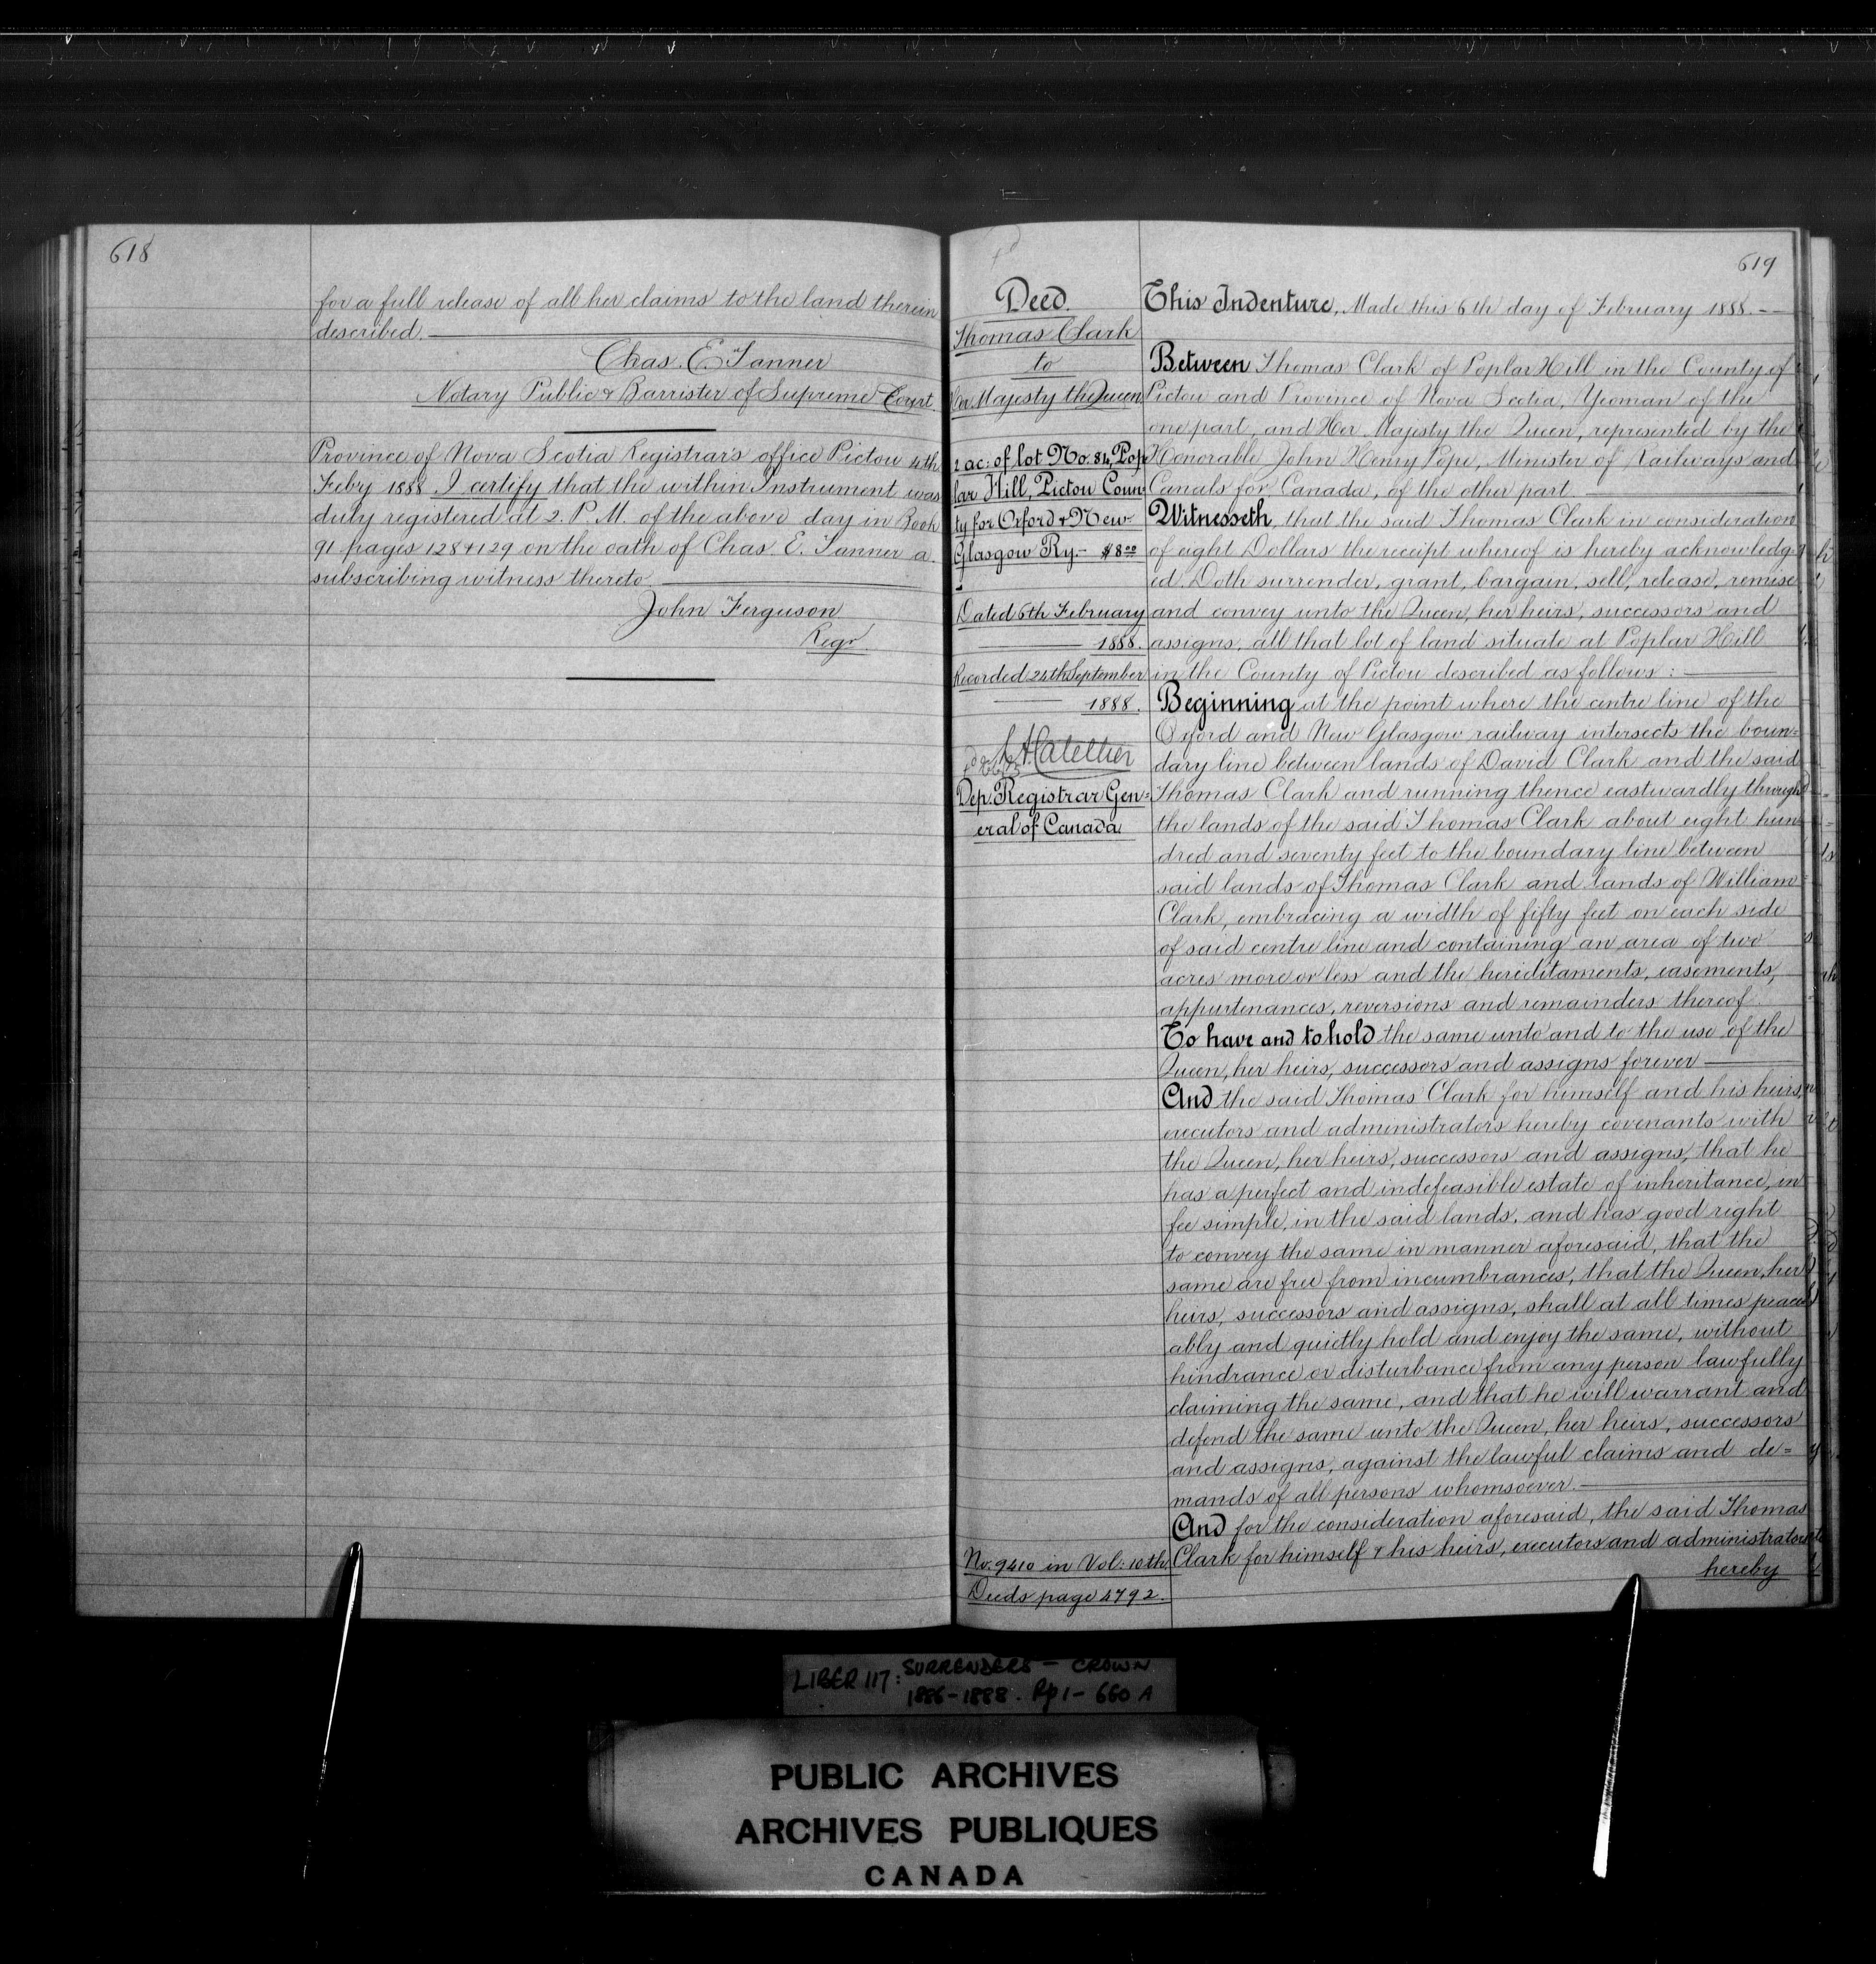 618
for a full release of all her claims to the land therein
described.
Chas. E. Tanner
Notary Public & Barrister of Supreme Court.
Province of Nova Scotia Registrar's office Pictou 4th
Feby 1888 I certify that the within Instrument was
duly registered at 2. P. M. of the above day in Book
91 pages 128 & 129 on the oath of Chas. E. Tanner a.
subscribing witness thereto
John Ferguson
Regr.
619
Deed.
Thomas Clark
to
Her Majesty the Queen
2 ac: of lot No. 84, Pop
lar Hill, Pictou Coun
ty for Oxford & New
Glasgow Ry.- $8.00
Dated 6th February
1888.
Recorded 24th September
1888.
Dep. Registrar Gen=
eral of Canada.
No. 9410 in Vol: 10th
Deeds page 4792.
This Indenture, Made this 6th day of February 1888.--
Between Thomas Clark of Poplar Hill in the County of
Pictou and Province of Nova Scotia, Yeoman of the
one part, and Her Majesty the Queen, represented by the
Honorable John Henry Pope, Minister of Railways and
Canals for Canada, of the other part.
Witnesseth, that the said Thomas Clark in consideration
of eight Dollars the receipt whereof is hereby acknowledg-
ed. Doth surrender, grant, bargain, sell, release, remise
and convey unto the Queen, her heirs, successors and
assigns, all that lot of land situate at Poplar Hill
in the County of Pictou described as follows:
Beginning at the point where the centre line of the
Oxford and New Glasgow railway intersects the boun=
dary line between lands of David Clark and the said
Thomas Clark and running thence eastwardly through
the lands of the said Thomas Clark about eight hun
dred and seventy feet to the boundary line between
said lands of Thomas Clark and lands of William
Clark, embracing a width of fifty feet on each side
of said centre line and containing an area of two
acres more or less and the hereditaments, easements,
appurtenances, reversions and remainders thereof.
To have and to hold the same unto and to the use of the
Queen, her heirs, successors and assigns forever
And the said Thomas Clark for himself and his heirs,
executors and administrators hereby covenants with
the Queen, her heirs, successors and assigns, that he
has a perfect and indefeasible estate of inheritance, in
fee simple, in the said lands, and has good right
to convey the same in manner aforesaid, that the
same are free from incumbrances, that the Queen, her
heirs, successors and assigns, shall at all times peace
ably and quietly hold and enjoy the same, without
hindrance or disturbance from any person lawfully
claiming the same, and that he will warrant and
defend the same unto the Queen, her heirs, successors
and assigns, against the lawful claims and de=
mands of all persons whomsoever.
And for the consideration aforesaid, the said Thomas
Clark for himself & his heirs, executors and administrators
hereby
LIBER 117: SURRENDERS - CROWN
1886-1888. Pp 1 - 660 A
PUBLIC ARCHIVES
ARCHIVES PUBLIQUES
CANADA